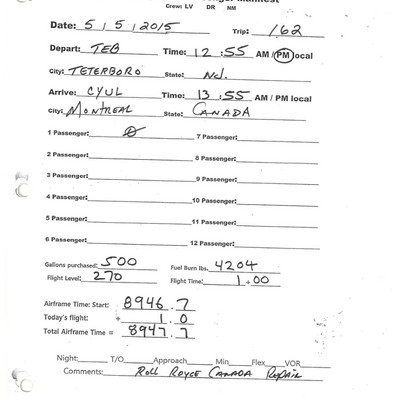 Crew: LV DR NM
Date: 5 / 5 / 2015 Trip: 162
Depart: TEB Time: 12 : 55 AM / PM local
City: TETERBORO State: NJ.
Arrive: CYUL Time: 13 : 55 AM / PM local
City: MONTREAL State: CANADA
1 Passenger: 0 7 Passenger:
2 Passenger: 8 Passenger:
3 Passenger: 9 Passenger:
4 Passenger: 10 Passenger:
5 Passenger: 11 Passenger:
6 Passenger: 12 Passenger:
Gallons purchased: 500 Fuel Burn lbs. 4204
Flight Level: 270 Flight Time: 1 + 00
Airframe Time: Start: 8946.7
Today's flight: + 1.0
Total Airframe Time = 8947.7
Night: T/O Approach Min Flex VOR
Comments: Roll Royce Canada Repair